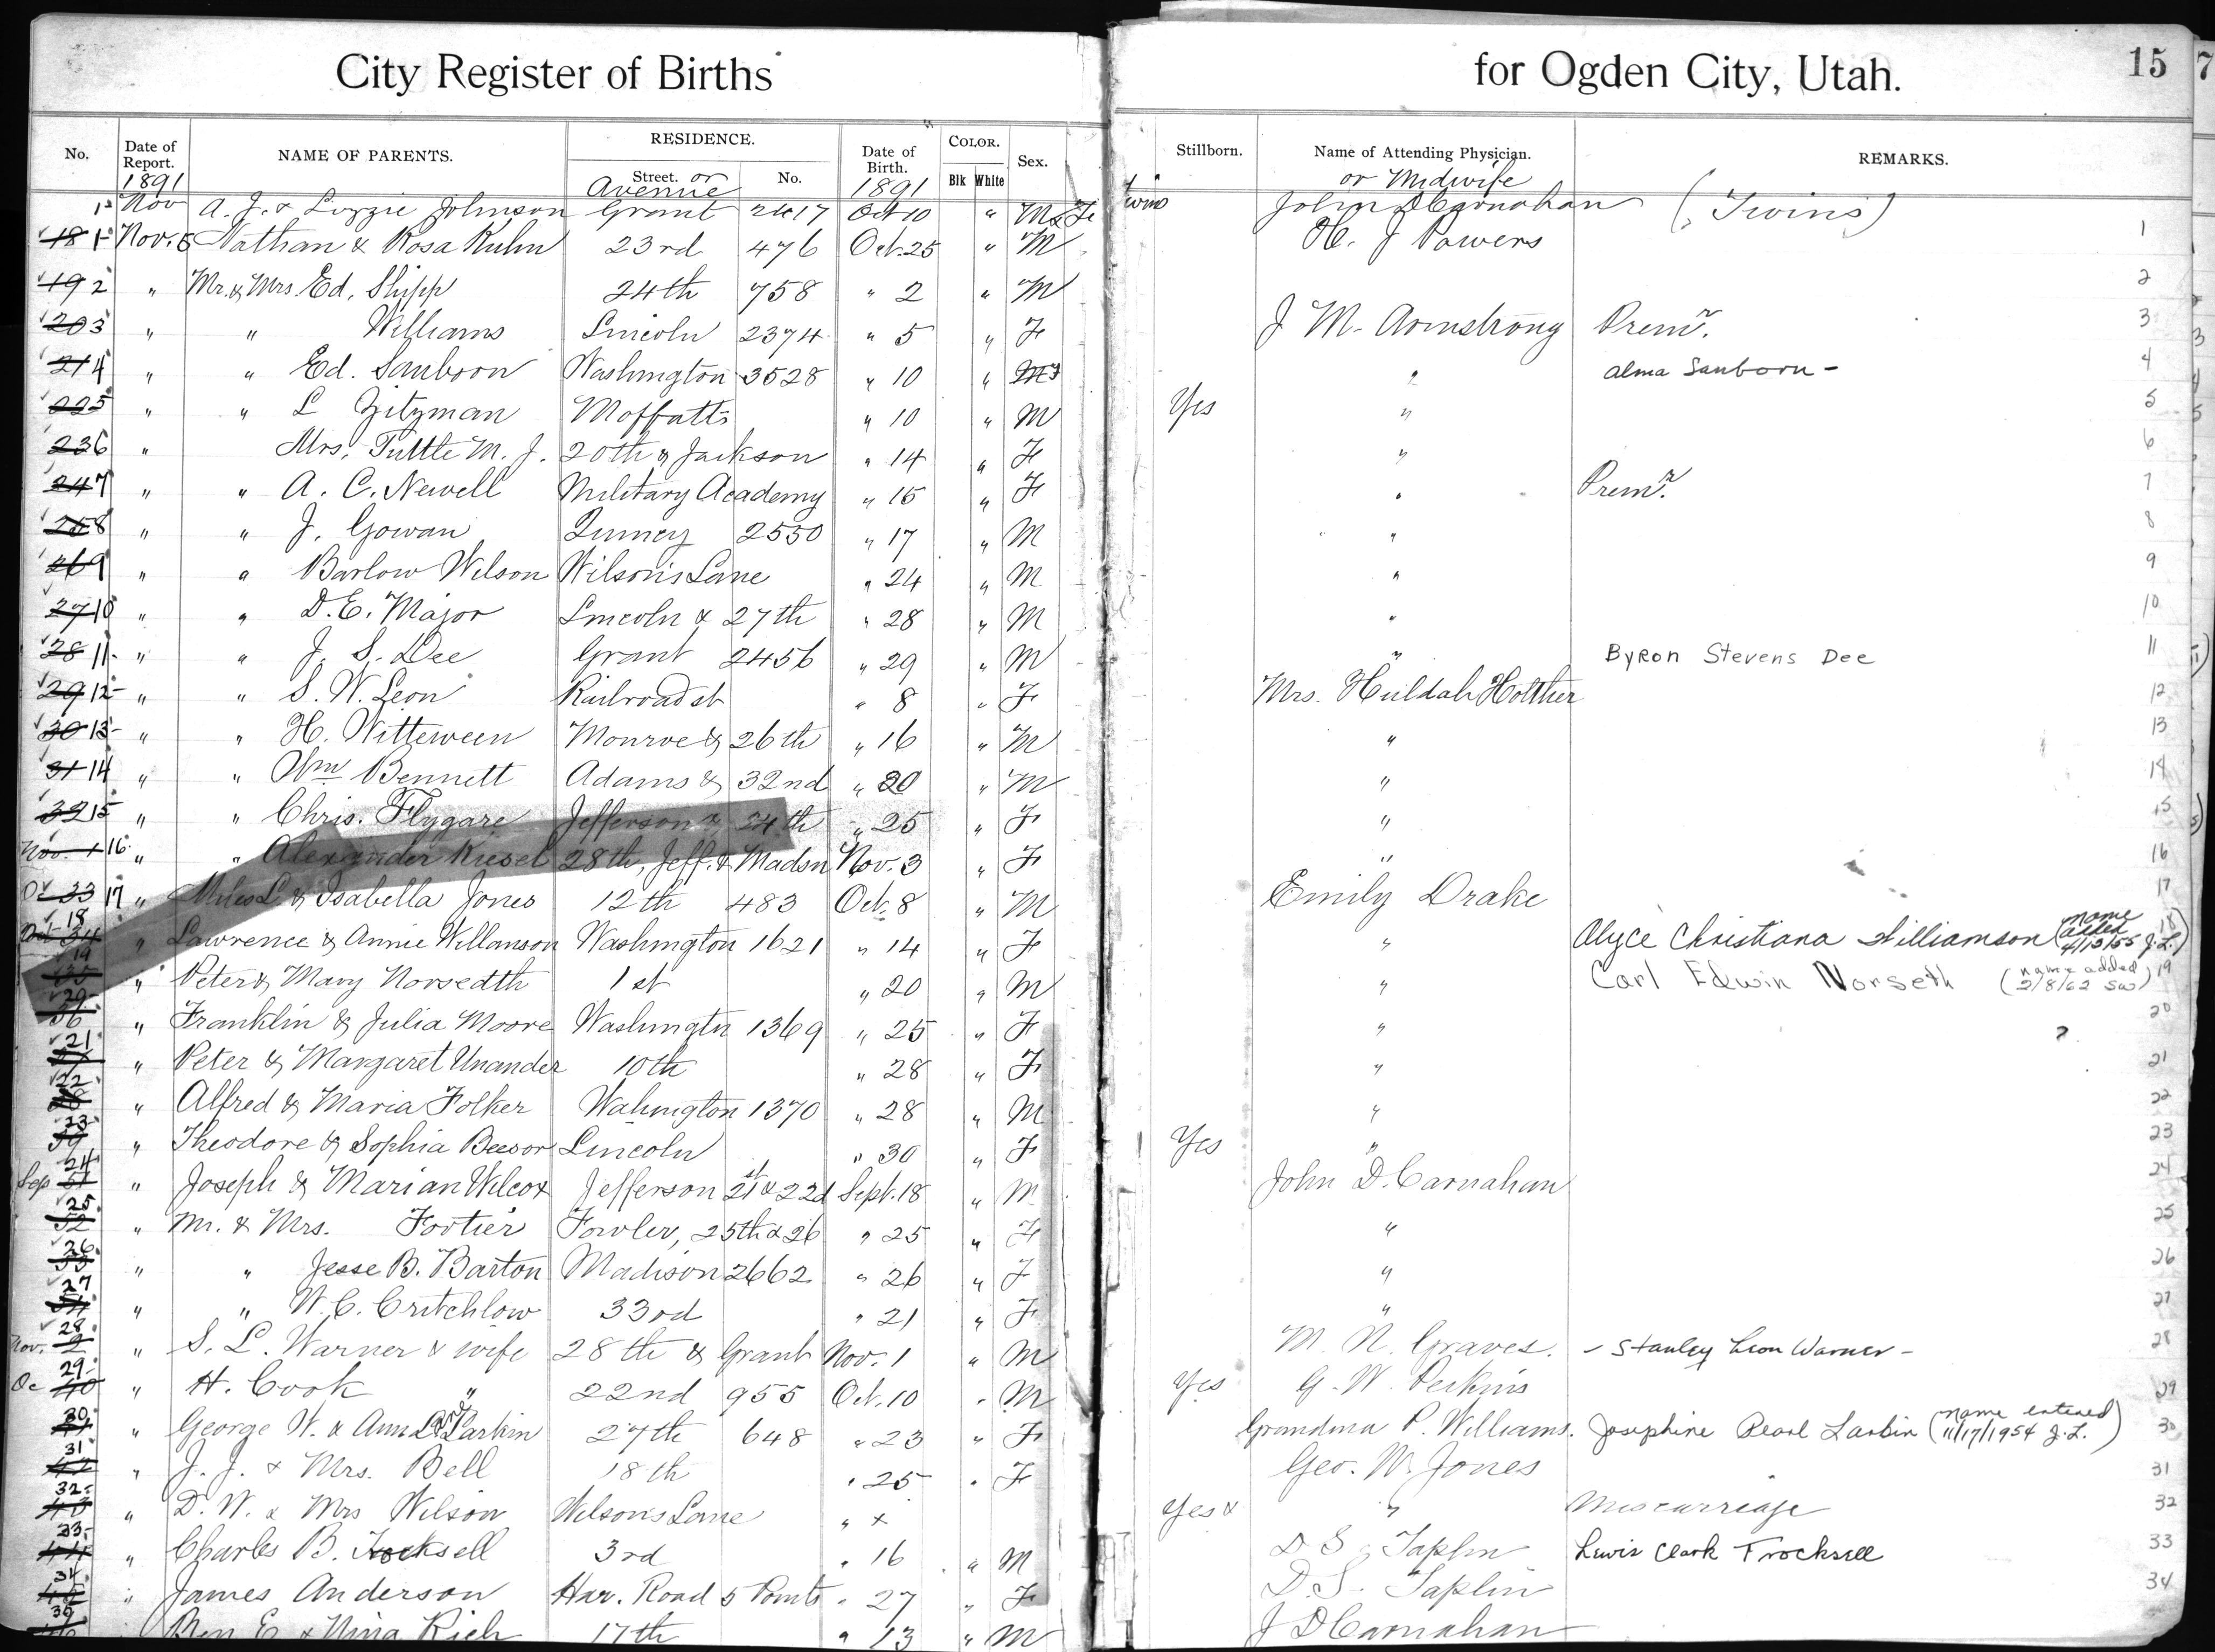 City Register of Births for Ogden City, Utah. 15 7
No. Date of Report. NAME OF PARENTS. RESIDENCE. Street. No. Date of Birth. COLOR. Blk White Sex. Stillborn. Name of Attending Physician. REMARKS.
1891 or Avenue 1891 or Midwife
1 Nov A. J. & Lizzie Johnson Grant 2417 Oct 10 " M & F twins John D Carnahan (Twins)
18 1 Nov. 5 Nathan & Rosa Kuhn 23rd 476 Oct. 25 " M H. J Powers 1
19 2 " Mr. & Mrs. Ed. Shipp 24th 758 " 2 " M 2
20 3 " " Williams Lincoln 2374 " 5 " F J M. Armstrong Prem. 3
21 4 " " Ed. Sanborn Washington 3528 " 10 " " Alma Sanborn - 4
22 5 " " L Zitzman Moffatts " 10 " M Yes " 5
23 6 " Mrs. Tuttle M. J. 20th & Jackson " 14 " F " 6
24 7 " " A. C. Newell Military Academy " 15 " F " Prem. 7
25 8 " " J. Gowan Quincy 2550 " 17 " M " 8
26 9 " " Barlow Wilson Wilson's Lane " 24 " M " 9
27 10 " " D. E. Major Lincoln & 27th " 28 " M " 10
28 11 " " J. S. Dee Grant 2456 " 29 " M " Byron Stevens Dee 11
29 12 " " S. W. Leon Railroad st " 8 " F Mrs. Huldah Holther 12
30 13 " " H. Witteween Monroe & 26th " 16 " M " 13
31 14 " " Wm Bennett Adams & 32nd " 20 " M " 14
32 15 " " Chris. Flygare Jefferson & 24th " 25 " F " 15
Nov. 1 16 " " Alexander Kiesel 28th, Jeff. & Madsn Nov. 3 " F " 16
Oc 33 17 " Miles L. & Isabella Jones 12th 483 Oct. 8 " M Emily Drake 17
Oct 34 18 " Lawrence & Annie Willanson Washington 1621 " 14 " F " Alyce Christiana Williamson (name added 4/13/55 J.L.) 18
35 19 " Peter & Mary Norsedth 1st " 20 " M " Carl Edwin Norseth (name added 2/8/62 SW) 19
36 20 " Franklin & Julia Moore Washingtn 1369 " 25 " F " 20
37 21 " Peter & Margaret Unander 10th " 28 " F " 21
38 22 " Alfred & Maria Folker Wahington 1370 " 28 " M " 22
39 23 " Theodore & Sophia Beevor Lincoln " 30 " F Yes " 23
Sep 51 24 " Joseph & Marian Wilcox Jefferson 21st & 22d Sept. 18 " M John D. Carnahan 24
52 25 " Mr. & Mrs. Footier Fowler, 25th & 26 " 25 " F " 25
53 26 " " Jesse B. Barton Madison 2662 " 26 " F " 26
54 27 " " W. C. Critchlow 33rd " 21 " F " 27
Nov. 2 28 " S. L. Warner & wife 28th & Grant Nov. 1 " M M. N. Graves. - Stanley Leon Warner - 28
Oc 40 29 " H. Cook " 22nd 955 Oct. 10 " M Yes G. W. Perkins 29
41 30 " George W. & Ann Larkin 27th 648 " 23 " F Grandma P. Williams. Josephine Pearl Larkin (name entered 11/17/1954 J.L.) 30
42 31 " J. J. & Mrs. Bell 18th " 25 " F Geo. W. Jones 31
43 32 " D. W. & Mrs Wilson Wilsons Lane " x Yes x " Miscarriage 32
44 33 " Charles B. Trocksell 3rd " 16 " M D S Taplin Lewis Clark Trocksell 33
45 34 " James Anderson Har. Road 5 Points " 27 " F D. S. Taplin 34
35 Ben E. & Nina Rich 17th " 13 " M J D Carnahan